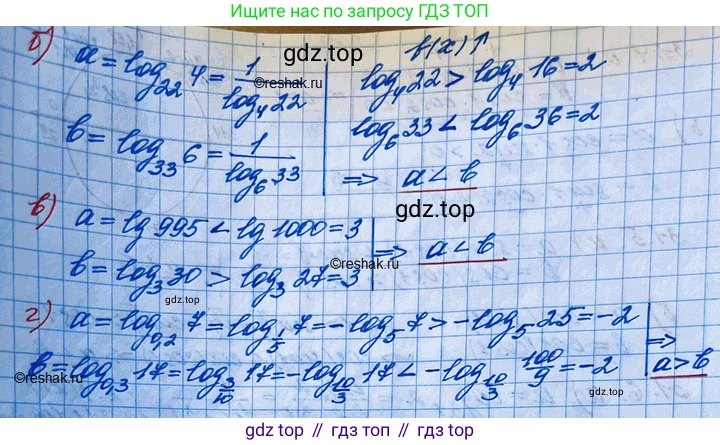 Ищите нас по запросу ГДЗ ТОП
б) a = log₂₂ 4 = 1/log₄ 22
gdz.top
f(x)↑
©reshak.ru
log₄ 22 > log₄ 16 = 2
b = log₃₃ 6 = 1/log₆ 33
log₆ 33 < log₆ 36 = 2
=> a < b
в) a = lg 995 < lg 1000 = 3
gdz.top
=> a < b
b = log₃ 30 > log₃ 27 = 3
©reshak.ru
gdz.top
г) a = log₀,₂ 7 = log_{1/5} 7 = -log₅ 7 > -log₅ 25 = -2
=>
b = log₀,₃ 17 = log_{3/10} 17 = -log_{10/3} 17 < -log_{10/3} 100/9 = -2
a > b
©reshak.ru
gdz.top
gdz.top // гдз.топ // gdz.top